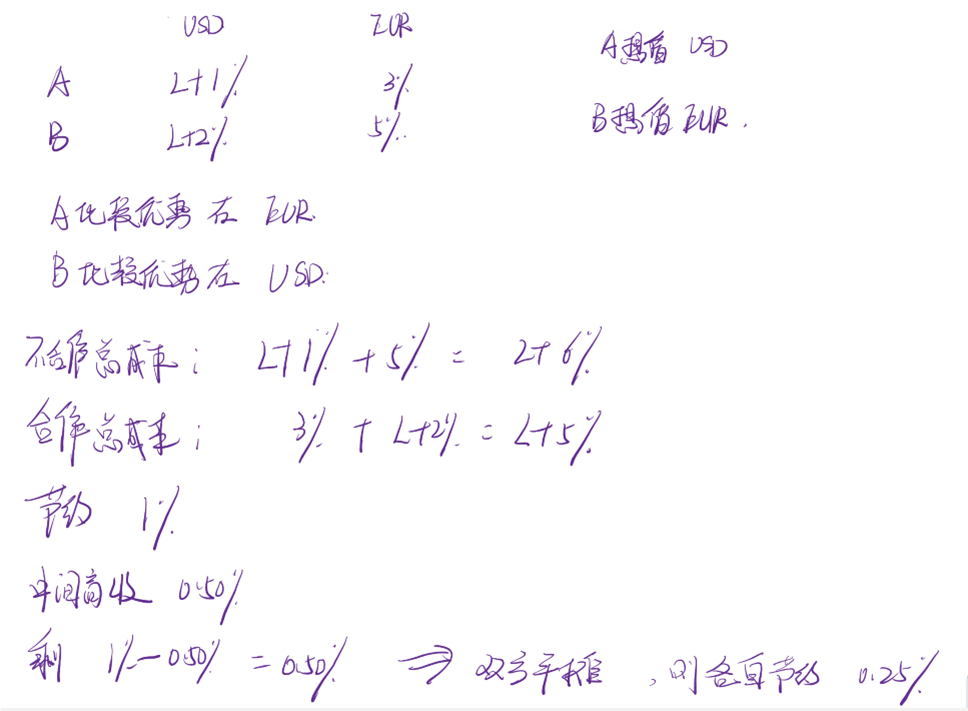 USD EUR
A L+1% 3% A想借 USD
B L+2% 5% B想借 EUR.
A比较优势在 EUR.
B比较优势在 USD.
不合作总成本: L+1% + 5% = L+6%
合作总成本: 3% + L+2% = L+5%
节约 1%
中间商收 0.50%
剩 1% - 0.50% = 0.50% ⇒ 双方平摊, 则各自节约 0.25%